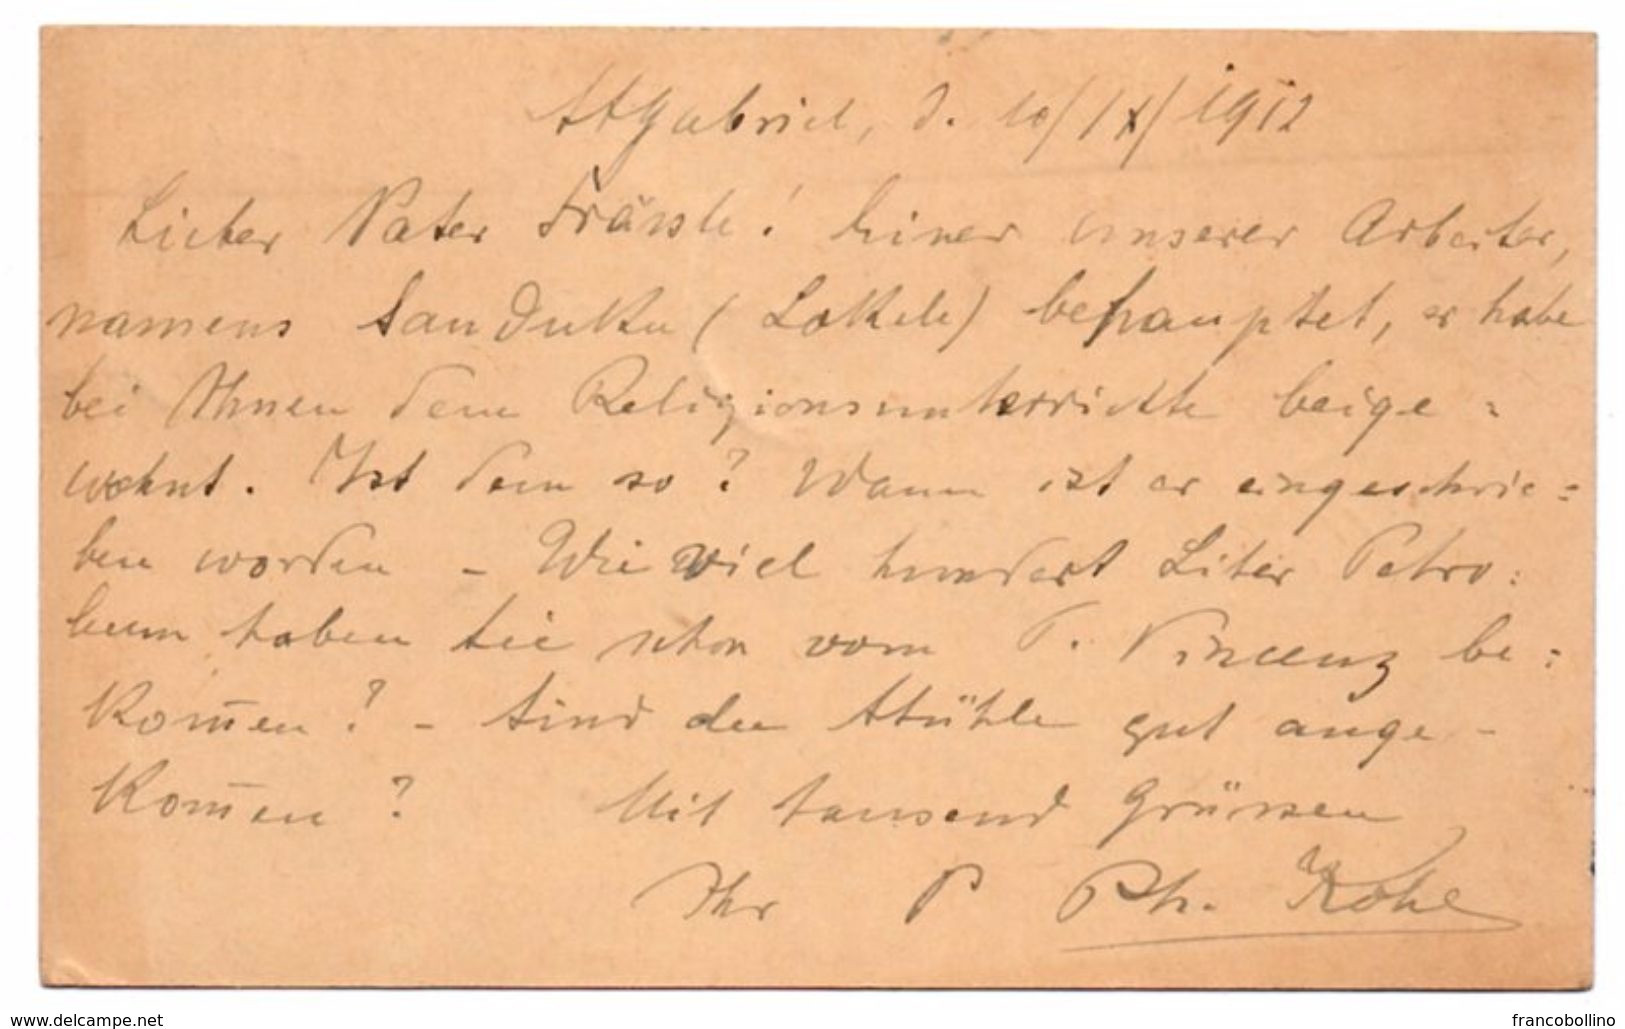 StGabriel, d. 10/IX/1912
Lieber Pater Frässle! Einer unserer Arbeiter,
namens Sanduku (Lokele) behauptet, er habe
bei Ihnen dem Religionsunterrichte beige=
wohnt. Ist dem so? Wann ist er eingeschrie=
ben worden – Wie viel hundert Liter Petro:
leum haben Sie schon vom P. Vincenz be:
kom̄en? – Sind die Stühle gut ange-
kom̄en? Mit tausend Grüssen
Ihr P Ph.
www.delcampe.net
francobollino